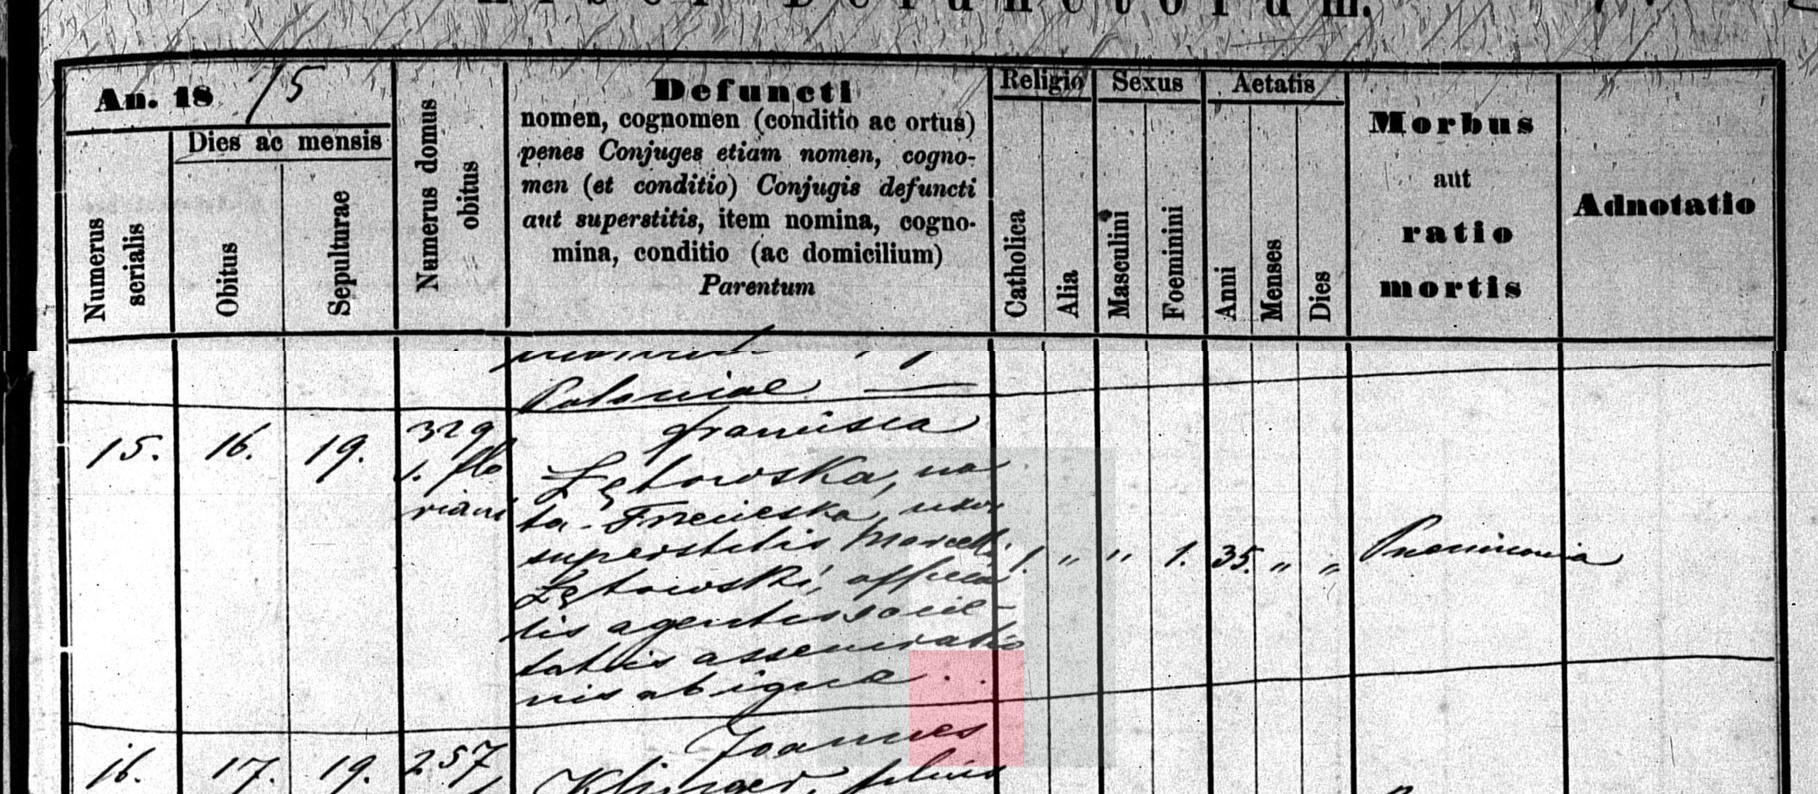 Liber Defunctorum.
An. 18 75
Dies ac mensis
Numerus serialis
Obitus
Sepulturae
Numerus domus obitus
Defuncti
nomen, cognomen (conditio ac ortus)
penes Conjuges etiam nomen, cogno-
men (et conditio) Conjugis defuncti
aut superstitis, item nomina, cogno-
mina, conditio (ac domicilium)
Parentum
Religio
Catholica
Alia
Sexus
Masculini
Foeminini
Aetatis
Anni
Menses
Dies
Morbus
aut
ratio
mortis
Adnotatio
Poloniae
15. 16. 19. 329 Francisca
s. Flo Łętowska, na
riani ta Trzecieska, uxor
superstitis Marcelli
Łętowski, officia
lis agentis socie-
tatis assecuratio
nis ab igne
1. " " 1. 35. " " Pneumonia
16. 17. 19. 257 Joannes
Klinger, filius